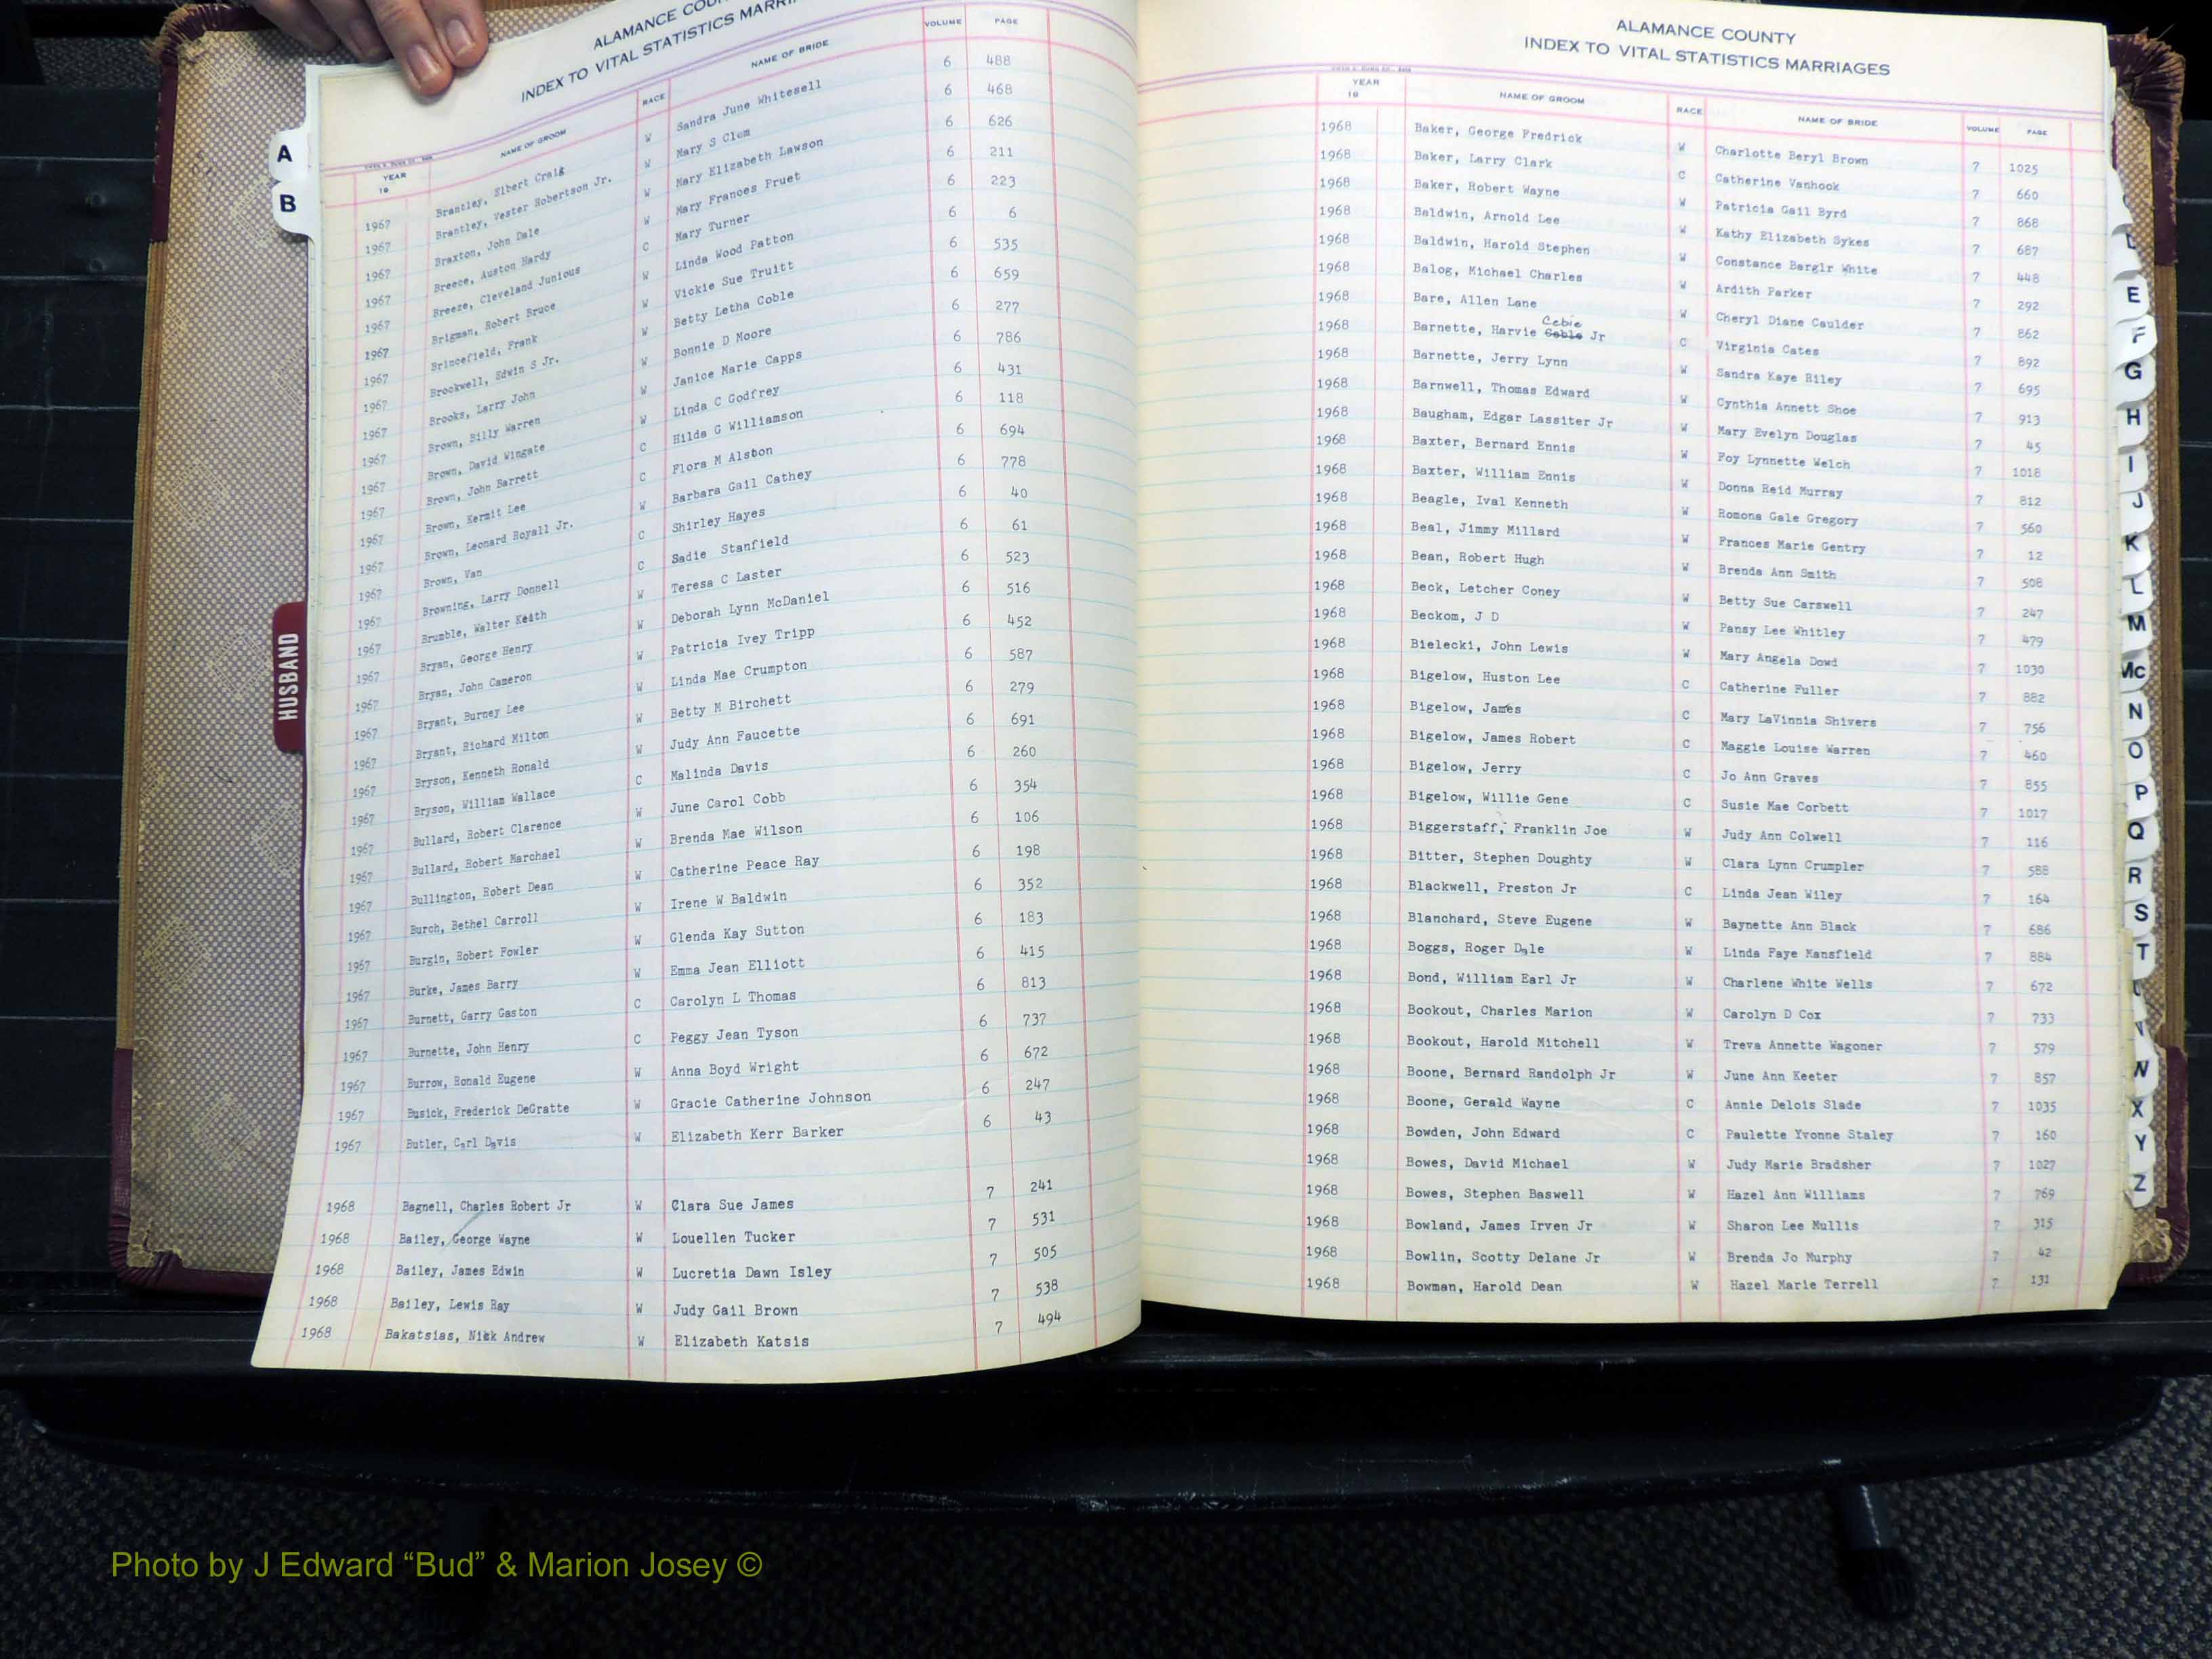 ALAMANCE COU
INDEX TO VITAL STATISTICS MARRI
YEAR 19 NAME OF GROOM RACE NAME OF BRIDE VOLUME PAGE
1967 Brantley, Elbert Craig W Sandra June Whitesell 6 488
1967 Brantley, Vester Robertson Jr. W Mary S Clem 6 468
1967 Braxton, John Dale W Mary Elizabeth Lawson 6 626
1967 Breece, Auston Hardy W Mary Frances Pruet 6 211
1967 Breeze, Cleveland Junious C Mary Turner 6 223
1967 Brigman, Robert Bruce W Linda Wood Patton 6 6
1967 Brincefield, Frank W Vickie Sue Truitt 6 535
1967 Brockwell, Edwin S Jr. W Betty Letha Coble 6 659
1967 Brooks, Larry John W Bonnie D Moore 6 277
1967 Brown, Billy Warren W Janice Marie Capps 6 786
1967 Brown, David Wingate W Linda C Godfrey 6 431
1967 Brown, John Barrett C Hilda G Williamson 6 118
1967 Brown, Kermit Lee C Flora M Alston 6 694
1967 Brown, Leonard Royall Jr. W Barbara Gail Cathey 6 778
1967 Brown, Van C Shirley Hayes 6 40
1967 Browning, Larry Donnell C Sadie Stanfield 6 61
1967 Brumble, Walter Keith W Teresa C Laster 6 523
1967 Bryan, George Henry W Deborah Lynn McDaniel 6 516
1967 Bryan, John Cameron W Patricia Ivey Tripp 6 452
1967 Bryant, Burney Lee W Linda Mae Crumpton 6 587
1967 Bryant, Richard Milton W Betty M Birchett 6 279
1967 Bryson, Kenneth Ronald W Judy Ann Faucette 6 691
1967 Bryson, William Wallace C Malinda Davis 6 260
1967 Bullard, Robert Clarence W June Carol Cobb 6 354
1967 Bullard, Robert Marchael W Brenda Mae Wilson 6 106
1967 Bullington, Robert Dean W Catherine Peace Ray 6 198
1967 Burch, Bethel Carroll W Irene W Baldwin 6 352
1967 Burgin, Robert Fowler W Glenda Kay Sutton 6 183
1967 Burke, James Barry W Emma Jean Elliott 6 415
1967 Burnett, Garry Gaston C Carolyn L Thomas 6 813
1967 Burnette, John Henry C Peggy Jean Tyson 6 737
1967 Burrow, Ronald Eugene W Anna Boyd Wright 6 672
1967 Busick, Frederick DeGratte W Gracie Catherine Johnson 6 247
1967 Butler, Carl Davis W Elizabeth Kerr Barker 6 43
1968 Bagnell, Charles Robert Jr W Clara Sue James 7 241
1968 Bailey, George Wayne W Louellen Tucker 7 531
1968 Bailey, James Edwin W Lucretia Dawn Isley 7 505
1968 Bailey, Lewis Ray W Judy Gail Brown 7 538
1968 Bakatsias, Nick Andrew W Elizabeth Katsis 7 494
A
B
HUSBAND
ALAMANCE COUNTY
INDEX TO VITAL STATISTICS MARRIAGES
YEAR 19 NAME OF GROOM RACE NAME OF BRIDE VOLUME PAGE
1968 Baker, George Fredrick W Charlotte Beryl Brown 7 1025
1968 Baker, Larry Clark C Catherine Vanhook 7 660
1968 Baker, Robert Wayne W Patricia Gail Byrd 7 868
1968 Baldwin, Arnold Lee W Kathy Elizabeth Sykes 7 687
1968 Baldwin, Harold Stephen W Constance Barglr White 7 448
1968 Balog, Michael Charles W Ardith Parker 7 292
1968 Bare, Allen Lane W Cheryl Diane Caulder 7 862
Cebie
1968 Barnette, Harvie Goble Jr C Virginia Cates 7 892
1968 Barnette, Jerry Lynn W Sandra Kaye Riley 7 695
1968 Barnwell, Thomas Edward W Cynthia Annett Shoe 7 913
1968 Baugham, Edgar Lassiter Jr W Mary Evelyn Douglas 7 45
1968 Baxter, Bernard Ennis W Foy Lynnette Welch 7 1018
1968 Baxter, William Ennis W Donna Reid Murray 7 812
1968 Beagle, Ival Kenneth W Romona Gale Gregory 7 560
1968 Beal, Jimmy Millard W Frances Marie Gentry 7 12
1968 Bean, Robert Hugh W Brenda Ann Smith 7 508
1968 Beck, Letcher Coney W Betty Sue Carswell 7 247
1968 Beckom, J D W Pansy Lee Whitley 7 479
1968 Bielecki, John Lewis W Mary Angela Dowd 7 1030
1968 Bigelow, Huston Lee C Catherine Fuller 7 882
1968 Bigelow, James C Mary LaVinnia Shivers 7 756
1968 Bigelow, James Robert C Maggie Louise Warren 7 460
1968 Bigelow, Jerry C Jo Ann Graves 7 855
1968 Bigelow, Willie Gene C Susie Mae Corbett 7 1017
1968 Biggerstaff, Franklin Joe W Judy Ann Colwell 7 116
1968 Bitter, Stephen Doughty W Clara Lynn Crumpler 7 588
1968 Blackwell, Preston Jr C Linda Jean Wiley 7 164
1968 Blanchard, Steve Eugene W Baynette Ann Black 7 686
1968 Boggs, Roger Dale W Linda Faye Mansfield 7 884
1968 Bond, William Earl Jr W Charlene White Wells 7 672
1968 Bookout, Charles Marion W Carolyn D Cox 7 733
1968 Bookout, Harold Mitchell W Treva Annette Wagoner 7 579
1968 Boone, Bernard Randolph Jr W June Ann Keeter 7 857
1968 Boone, Gerald Wayne C Annie Delois Slade 7 1035
1968 Bowden, John Edward C Paulette Yvonne Staley 7 160
1968 Bowes, David Michael W Judy Marie Bradsher 7 1027
1968 Bowes, Stephen Baswell W Hazel Ann Williams 7 769
1968 Bowland, James Irven Jr W Sharon Lee Mullis 7 315
1968 Bowlin, Scotty Delane Jr W Brenda Jo Murphy 7 42
1968 Bowman, Harold Dean W Hazel Marie Terrell 7 131
E
F
G
H
I
J
K
L
M
Mc
N
O
P
Q
R
S
T
W
X
Y
Z
Photo by J Edward “Bud” & Marion Josey ©